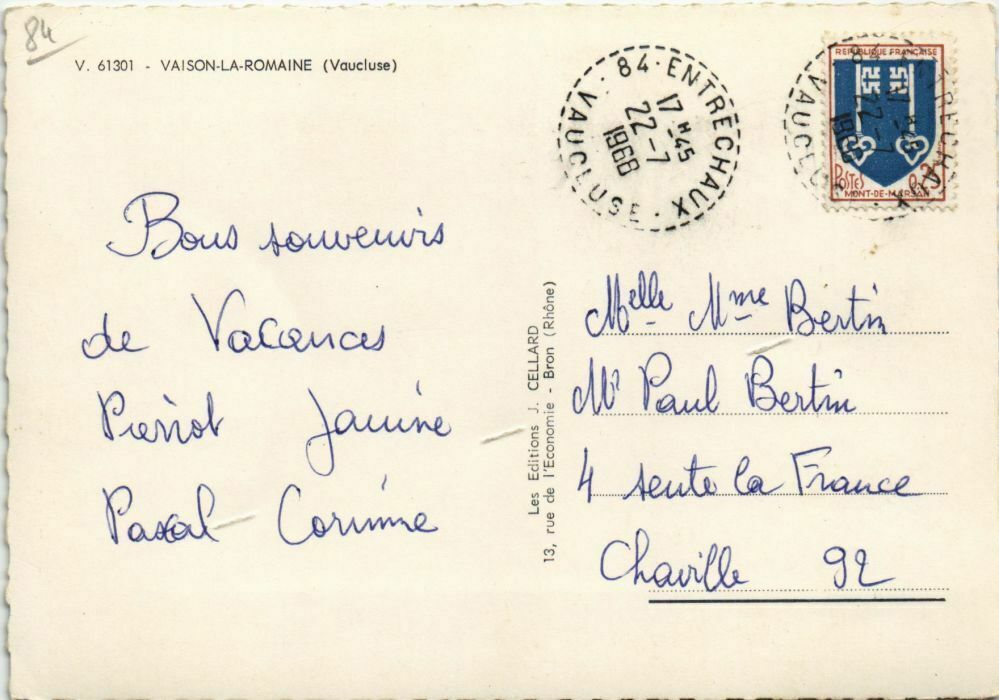 84
V. 61301 - VAISON-LA-ROMAINE (Vaucluse)
84 · ENTRECHAUX · VAUCLUSE ·
17 H 45
22 - 7
1968
REPUBLIQUE FRANÇAISE
POSTES
0.25
MONT-DE-MARSAN
84 ENTRECHAUX VAUCLUSE
17 H 45
22 - 7
1968
Bons souvenirs
de Vacances
Pierrot Janine
Pascal Corinne
Les Editions J. CELLARD
13, rue de l'Economie - Bron (Rhône)
Melle Mme Bertin
Mr Paul Bertin
4 sente la France
Chaville 92